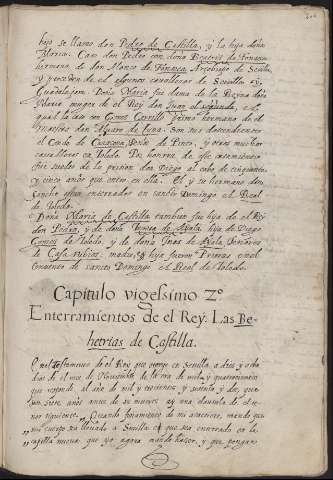 hijo se llamo don Pedro de Castilla, y la hija doña
Maria. Caso don Pedro con doña Beatriz de Fonseca
hermana de don Alonso de Fonseca Arçobispo de Sevilla,
y proceden de el algunos cavalleros de Sevilla, y
Guadalajara. Doña Maria fue dama de la Reyna doña
Maria muger de el Rey don Juan el segundo, el
qual la caso con Gomez Carrillo primo hermano de el
maestre don Alvaro de Luna. Son sus descendientes
el Conde de Caracena, Señor de Pinto, y otros muchos
cavalleros en Toledo. Por honrra de este casamiento
fue suelto de la prision don Diego al cabo de cinquenta
y cinco años que entro en ella. El y su hermano don
Sancho estan enterrados en sancto Domingo el Real
de Toledo.
Doña Maria de Castilla tambien fue hija de el Rey
don Pedro, y de doña Teresa de Ayala hija de Diego
Gomez de Toledo, y de doña Ines de Ayala Señores
de Casa rubios, madre, e hija fueron Prioras en el
Convento de sancto Domingo el Real de Toledo.
Capitulo vigessimo 2º
Enterramientos de el Rey. Las Be-
hetrias de Castilla.
En el testamento de el Rey que otorgo en Sevilla a diez y ocho
dias de el mes de Noviembre de la era de mil y quatrocientos
que responde al año de mil y trecientos y sesenta y dos, que
son siete años antes de su muerte ay una clausula de el te-
nor siguiente. Quando finamiento de mi acaeciere, mando que
mi cuerpo sea llevado a Sevilla e que sea enterrado en la
capilla nueva que yo agora mando hazer, y que pongan